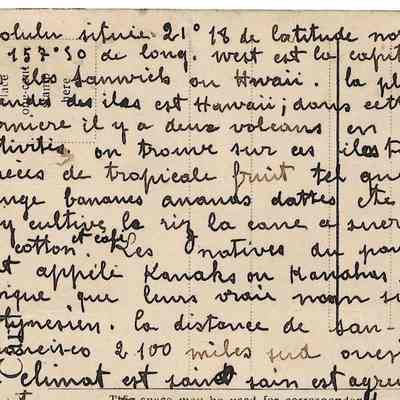 olulu située 21° 18 de latitude no
157°50 de long. west est la capit
iles Sanwichs ou Hwaii. la pl
des iles est Hawaii; dans cett
erniere il y a deux volcans en
tivités. on trouve sur ces iles t
èces de tropicale fruit tel que
nge bananes ananas dattes etc
y cultive le riz la cane a sucr
cotton et café. Les natives du pay
t appélé Kanaks ou Kanakas
ique que leurs vraie nom si
lynesien. la distance de San-
ancisco 2100 miles sud ouest
climat est sain et agre
This space may be used for correspondence
Place
one cent
stamp
here